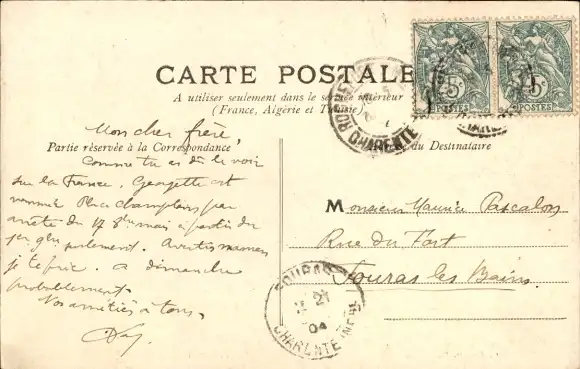 CARTE POSTALE
A utiliser seulement dans le service intérieur
(France, Algérie et Tunisie)
Partie réservée à la Correspondance
du Destinataire
5
5
POSTES
POSTES
CHARENTE
Mon cher frère,
Comme tu as dû le voir
sur la France, Georgette est
nommée Place Champlain par
arrêté du 17 à partir du
1er
je te prie. A dimanche
probablement.
Nos amitiés à tous.
Monsieur Maurice Pascalon
Rue du Fort
Fouras les Bains
FOURAS
21
04
CHARENTE INFRE